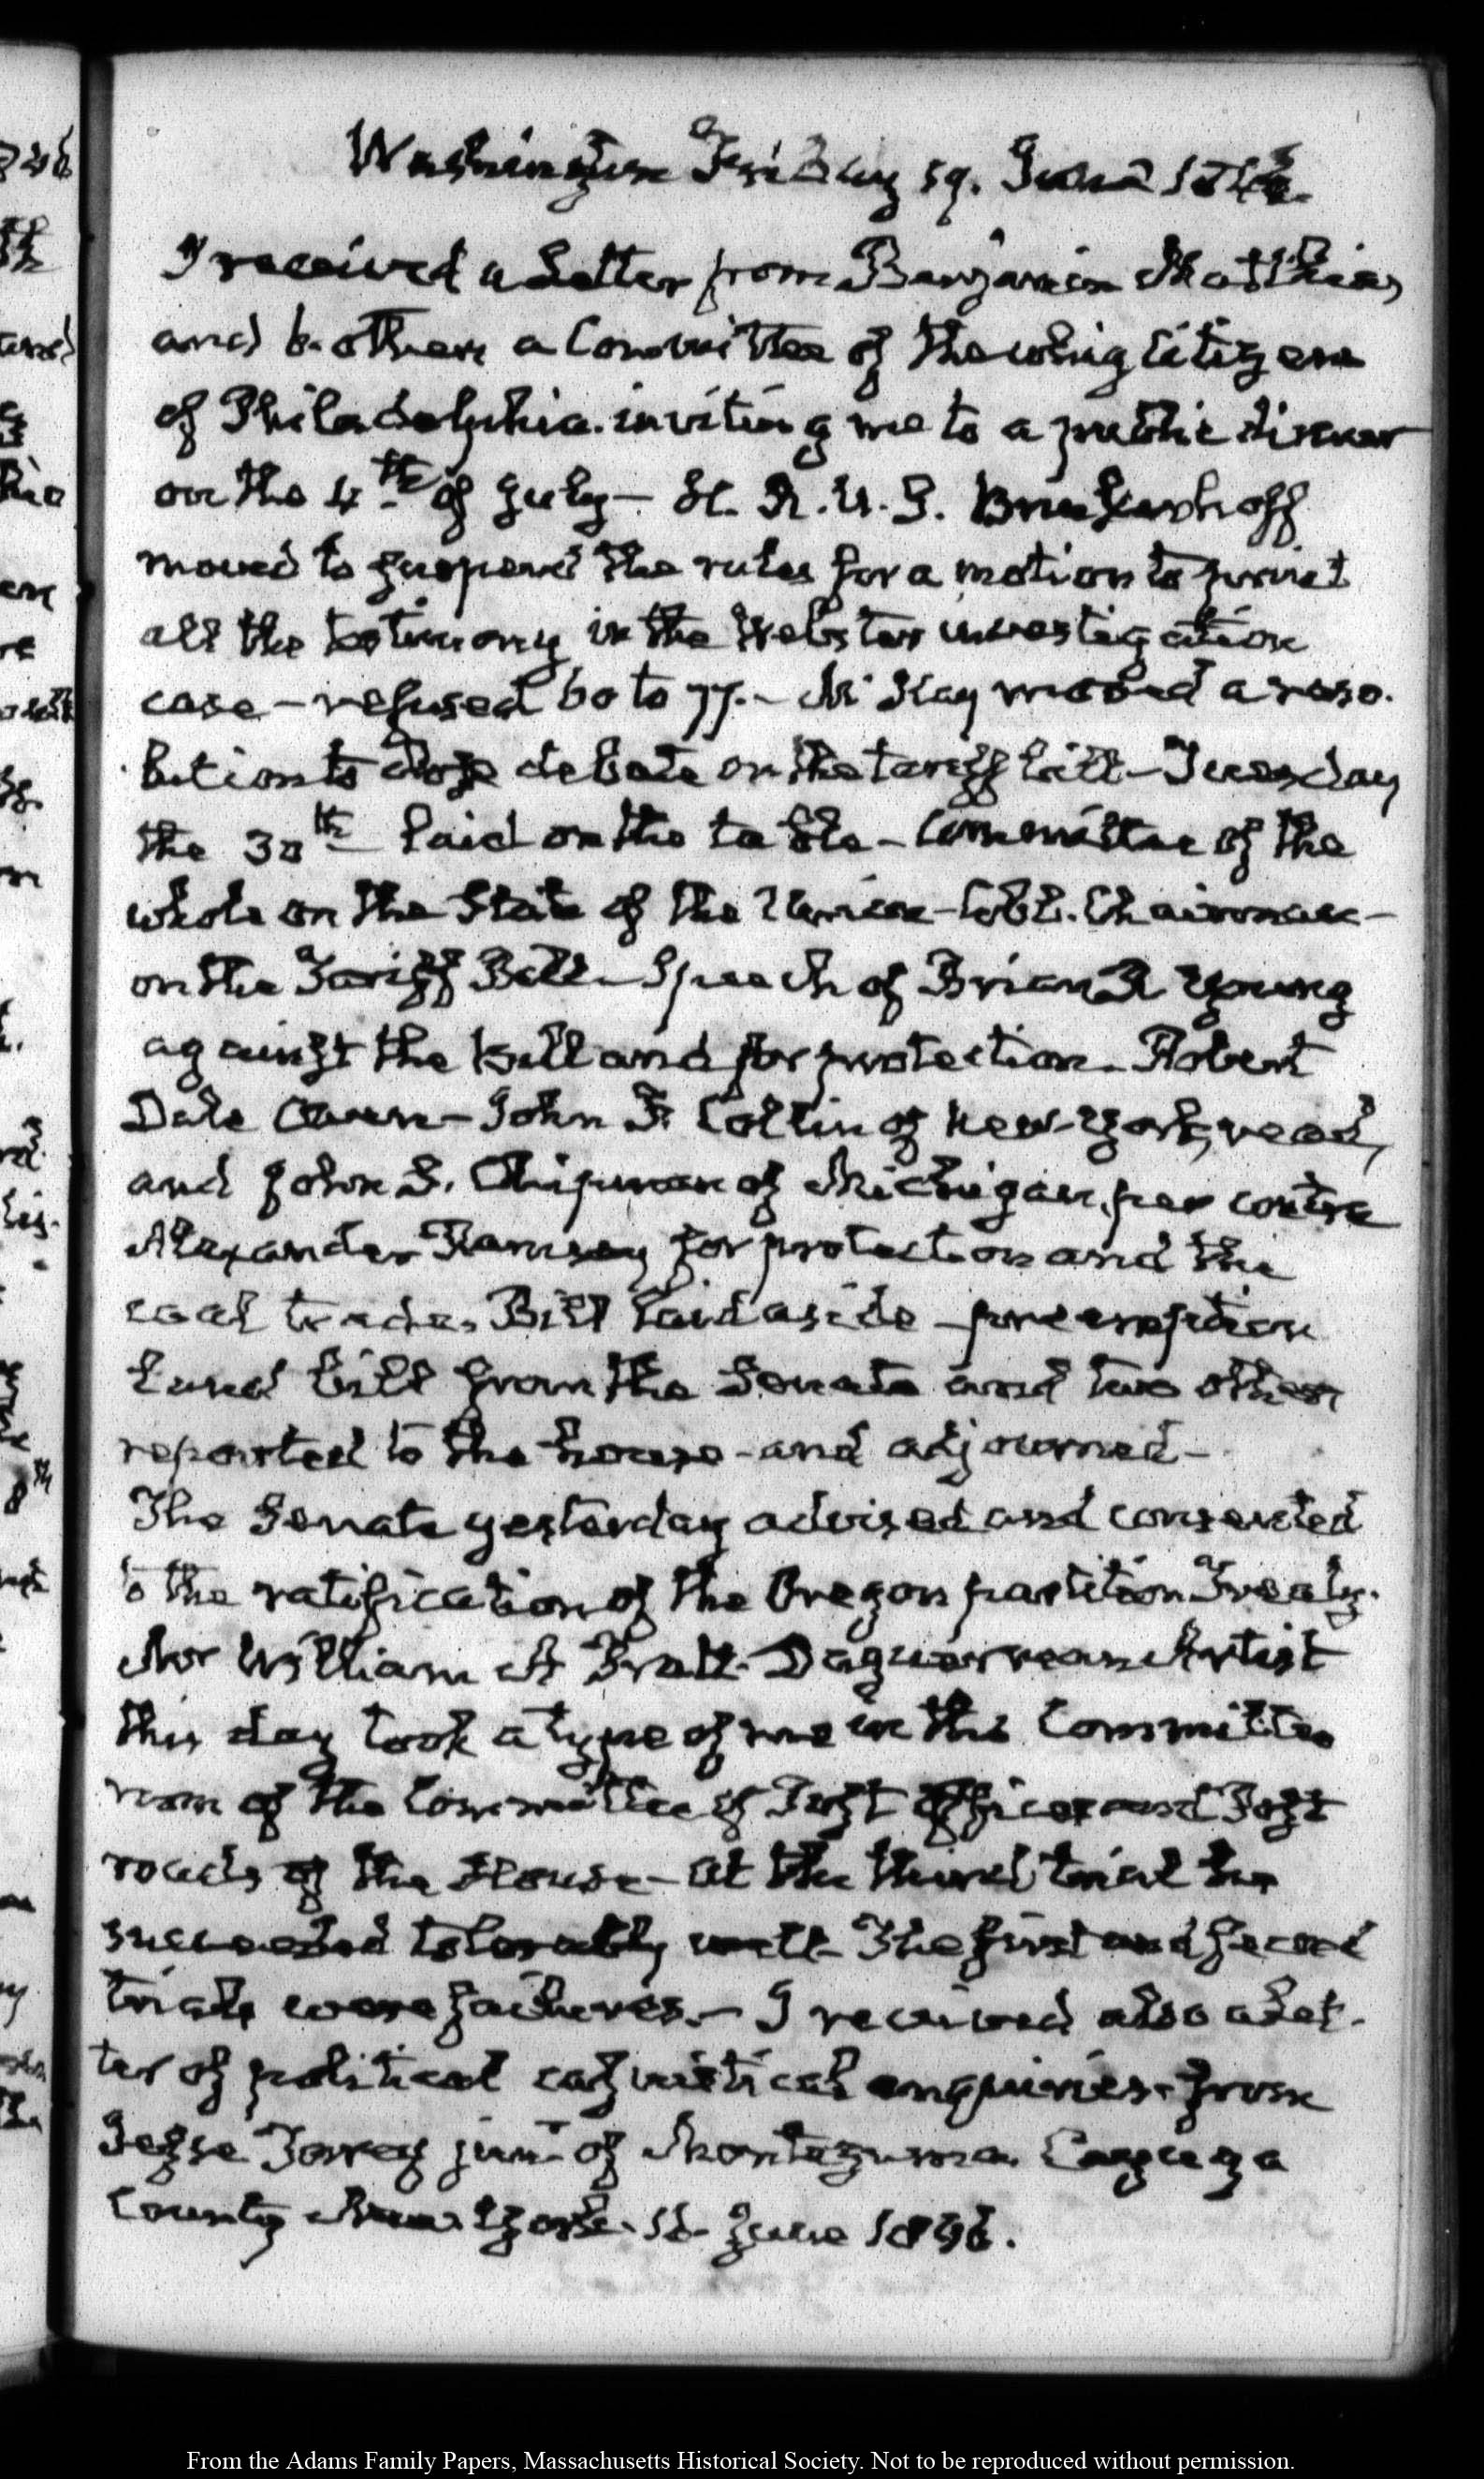 Washington Friday 19. June 1846.
I received a Letter from Benjamin Matthias,
and 6. others a Committee of the whig Citizens
of Philadelphia. inviting me to a public dinner
on the 4.th of July — H. R. U. S. Brinkerhoff
moved to suspend the rules for a motion to print
all the testimony in the Webster investigation
case — refused 60 to 77. — McKay moved a reso-
lution to close debate on the tariff bill — Tuesday
the 30th laid on the table — Committee of the
whole on the State of the Union — Cobb. Chairman —
on the Tariff Bill — Speech of Brian R Young
against the bill and for protection. Robert
Dale Owen — John F. Collin of New-York, read,
and John S. Chipman of Michigan, per contra
Alexander Ramsey for protection and the
coal trade. Bill laid aside — preemption
land bill from the Senate and two others
reported to the house — and adjourned —
The Senate yesterday advised and consented
to the ratification of the Oregon partition Treaty.
Mr William A Pratt. Daguerrean Artist
this day took a type of me in the Committee
room of the Committee of Post Office and Post
roads of the House — at the third trial he
succeeded tolerably well — The first and second
trials were failures. — I received also a let-
ter of political casuistical enquiries from
Jesse Torrey junr of Montezuma Cayuga
County New York. 16 June 1846.
From the Adams Family Papers, Massachusetts Historical Society. Not to be reproduced without permission.